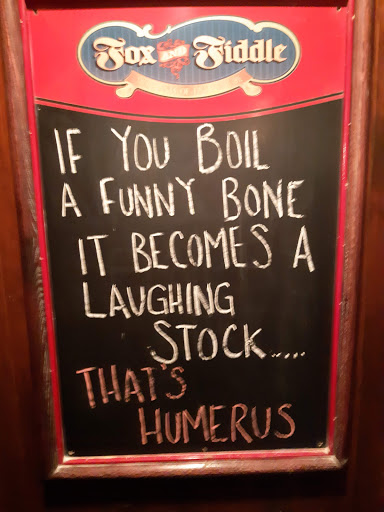 Fox AND Fiddle
IF YOU BOIL
A FUNNY BONE
IT BECOMES A
LAUGHING
STOCK.....
THAT'S
HUMERUS